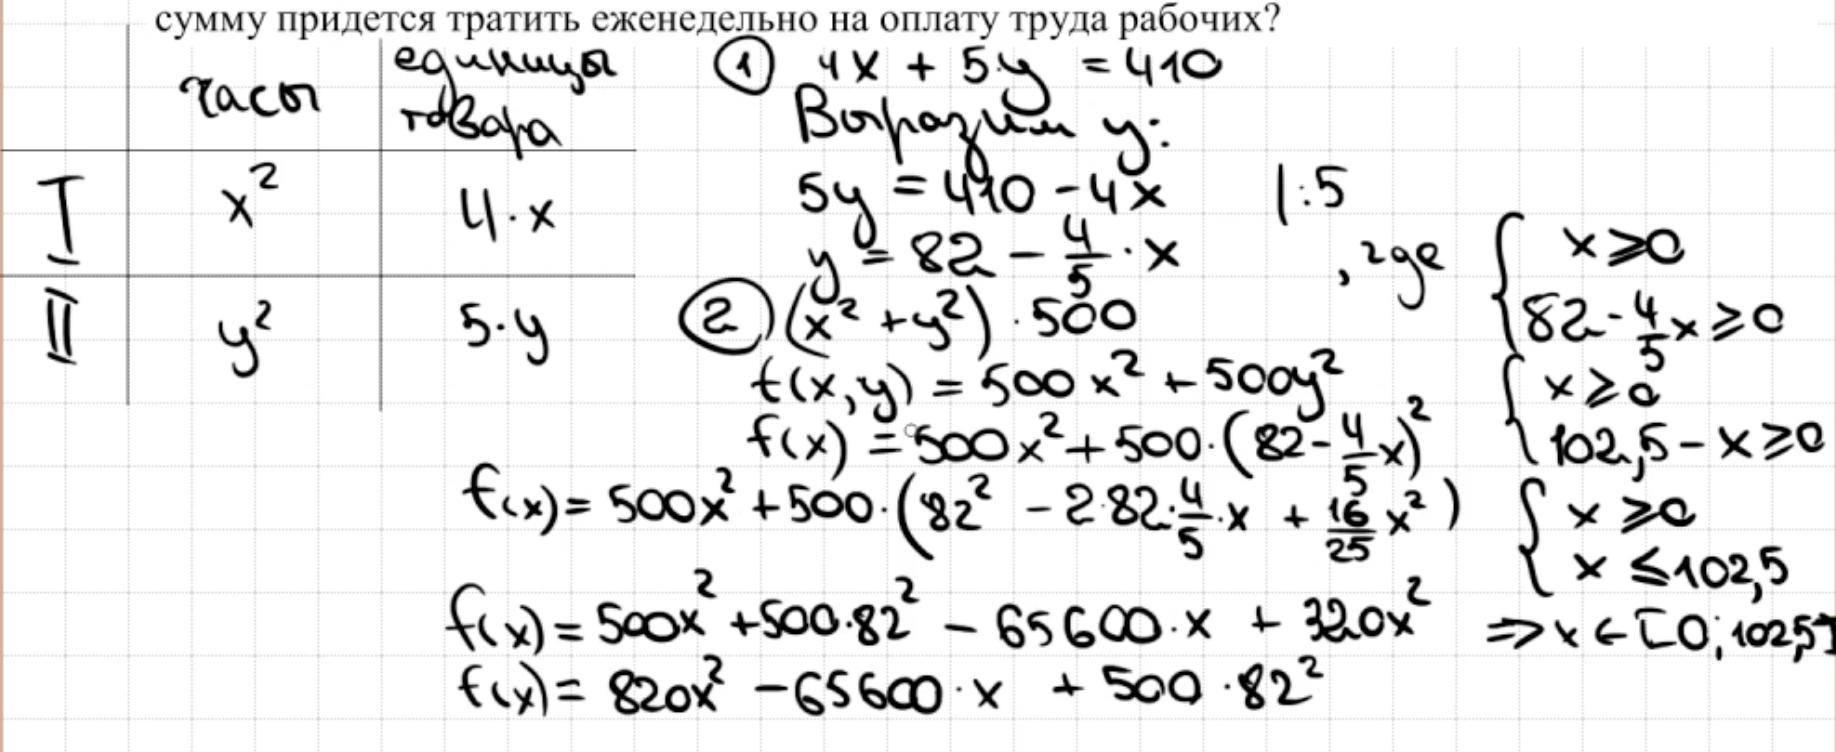 сумму придется тратить еженедельно на оплату труда рабочих?
часы
единицы
товара
I
x²
4·x
II
y²
5·y
① 4x + 5y = 410
Выразим y:
5y = 410 - 4x |:5
y = 82 - 4/5 · x , где { x ≥ 0
82 - 4/5 x ≥ 0
② (x² + y²) · 500
f(x,y) = 500x² + 500y²
{ x ≥ 0
f(x) = 500x² + 500·(82 - 4/5 x)²
102,5 - x ≥ 0
f(x) = 500x² + 500·(82² - 2·82·4/5·x + 16/25 x²)
{ x ≥ 0
x ≤ 102,5
f(x) = 500x² + 500·82² - 65600·x + 320x²
⇒ x ∈ [0; 102,5]
f(x) = 820x² - 65600·x + 500·82²